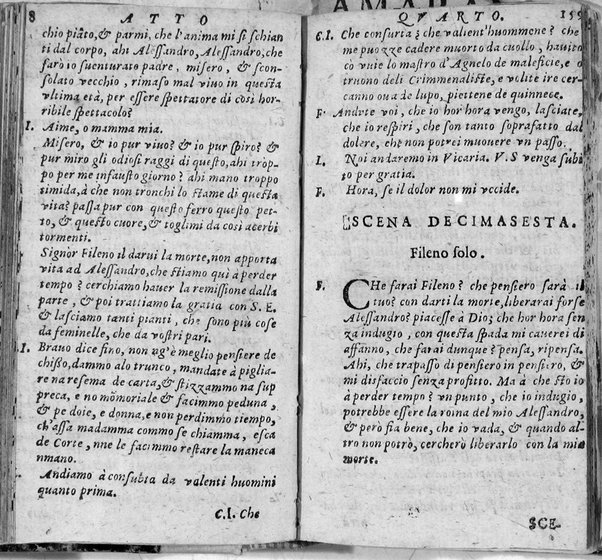 8 ATTO
chio piãto, & parmi, che l'anima mi si schian
ti dal corpo, ahi Alessandro, Alessandro, che
farò io suenturato padre, misero, & scon-
solato vecchio, rimaso mal viuo in questa
vltima età, per essere spettatore di cosi hor-
ribile spettacolo?
I. Aime, o mamma mia.
Misero, & io pur viuo? & io pur spiro? &
pur miro gli odiosi raggi di questo, ahi trop-
po per me infausto giorno? ahi mano troppo
timida, à che non tronchi lo stame di questa
vita? passa pur con questo ferro questo pet-
to, & questo cuore, & toglimi da cosi acerbi
tormenti.
Signor Fileno il darui la morte, non apporta
vita ad Alessandro, che stiamo quì à perder
tempo? cerchiamo hauer la remissione dalla
parte, & poi trattiamo la gratia con S.E.
& lasciamo tanti pianti, che sono più cose
da feminelle, che da vostri pari.
I. Brauo dice fino, non ng'è meglio pensiere de
chisso, dammo alo trunco, mandate à pigliare
na resema de carta, & stizzammo na sup
preca, e no mòmoriale & facimmo peduna,
& pe doie, e donna, e non perdimmo tiempo,
ch'assa madamma commo se chiamma, esca
de Corte, nne le facimmo restare la maneca
nmano.
Andiamo à consulta da valenti huomini
quanto prima.
C.I. Che
QVARTO. 159
C.I. Che consurta? che valient'huommene? che
me puozze cadere muorto da cuollo, hauito
cò vuie lo mastro d'Agnelo de maleficie, e o
truono deli Crimmenaliste, e volite ire cer-
canno oua de lupo, piettene de quinnece.
F. Andate voi, che io hor'hora vengo, lasciate,
che io respiri, che son tanto soprafatto dal
dolere, che non potrei muouere vn passo.
I. Noi andaremo in Vicaria. V.S venga subi
to per gratia.
F. Hora, se il dolor non mi vccide.
SCENA DECIMASESTA.
Fileno solo.
F. CHe farai Fileno? che pensiero sarà il
tuo? con darti la morte, liberarai forse
Alessandro? piacesse à Dio; che hor hora sen
za indugio, con questa spada mi cauerei di
affanno, che farai dunque? pensa, ripensa.
Ahi, che trapasso di pensiero in pensiero, &
mi disfaccio senza profitto. Ma à che sto io
à perder tempo? vn punto, che io indugio,
potrebbe essere la roina del mio Alessandro,
& però fia bene, che io vada, & quando al-
tro non potrò, cercherò liberarlo con la mia
morte.
SCE-